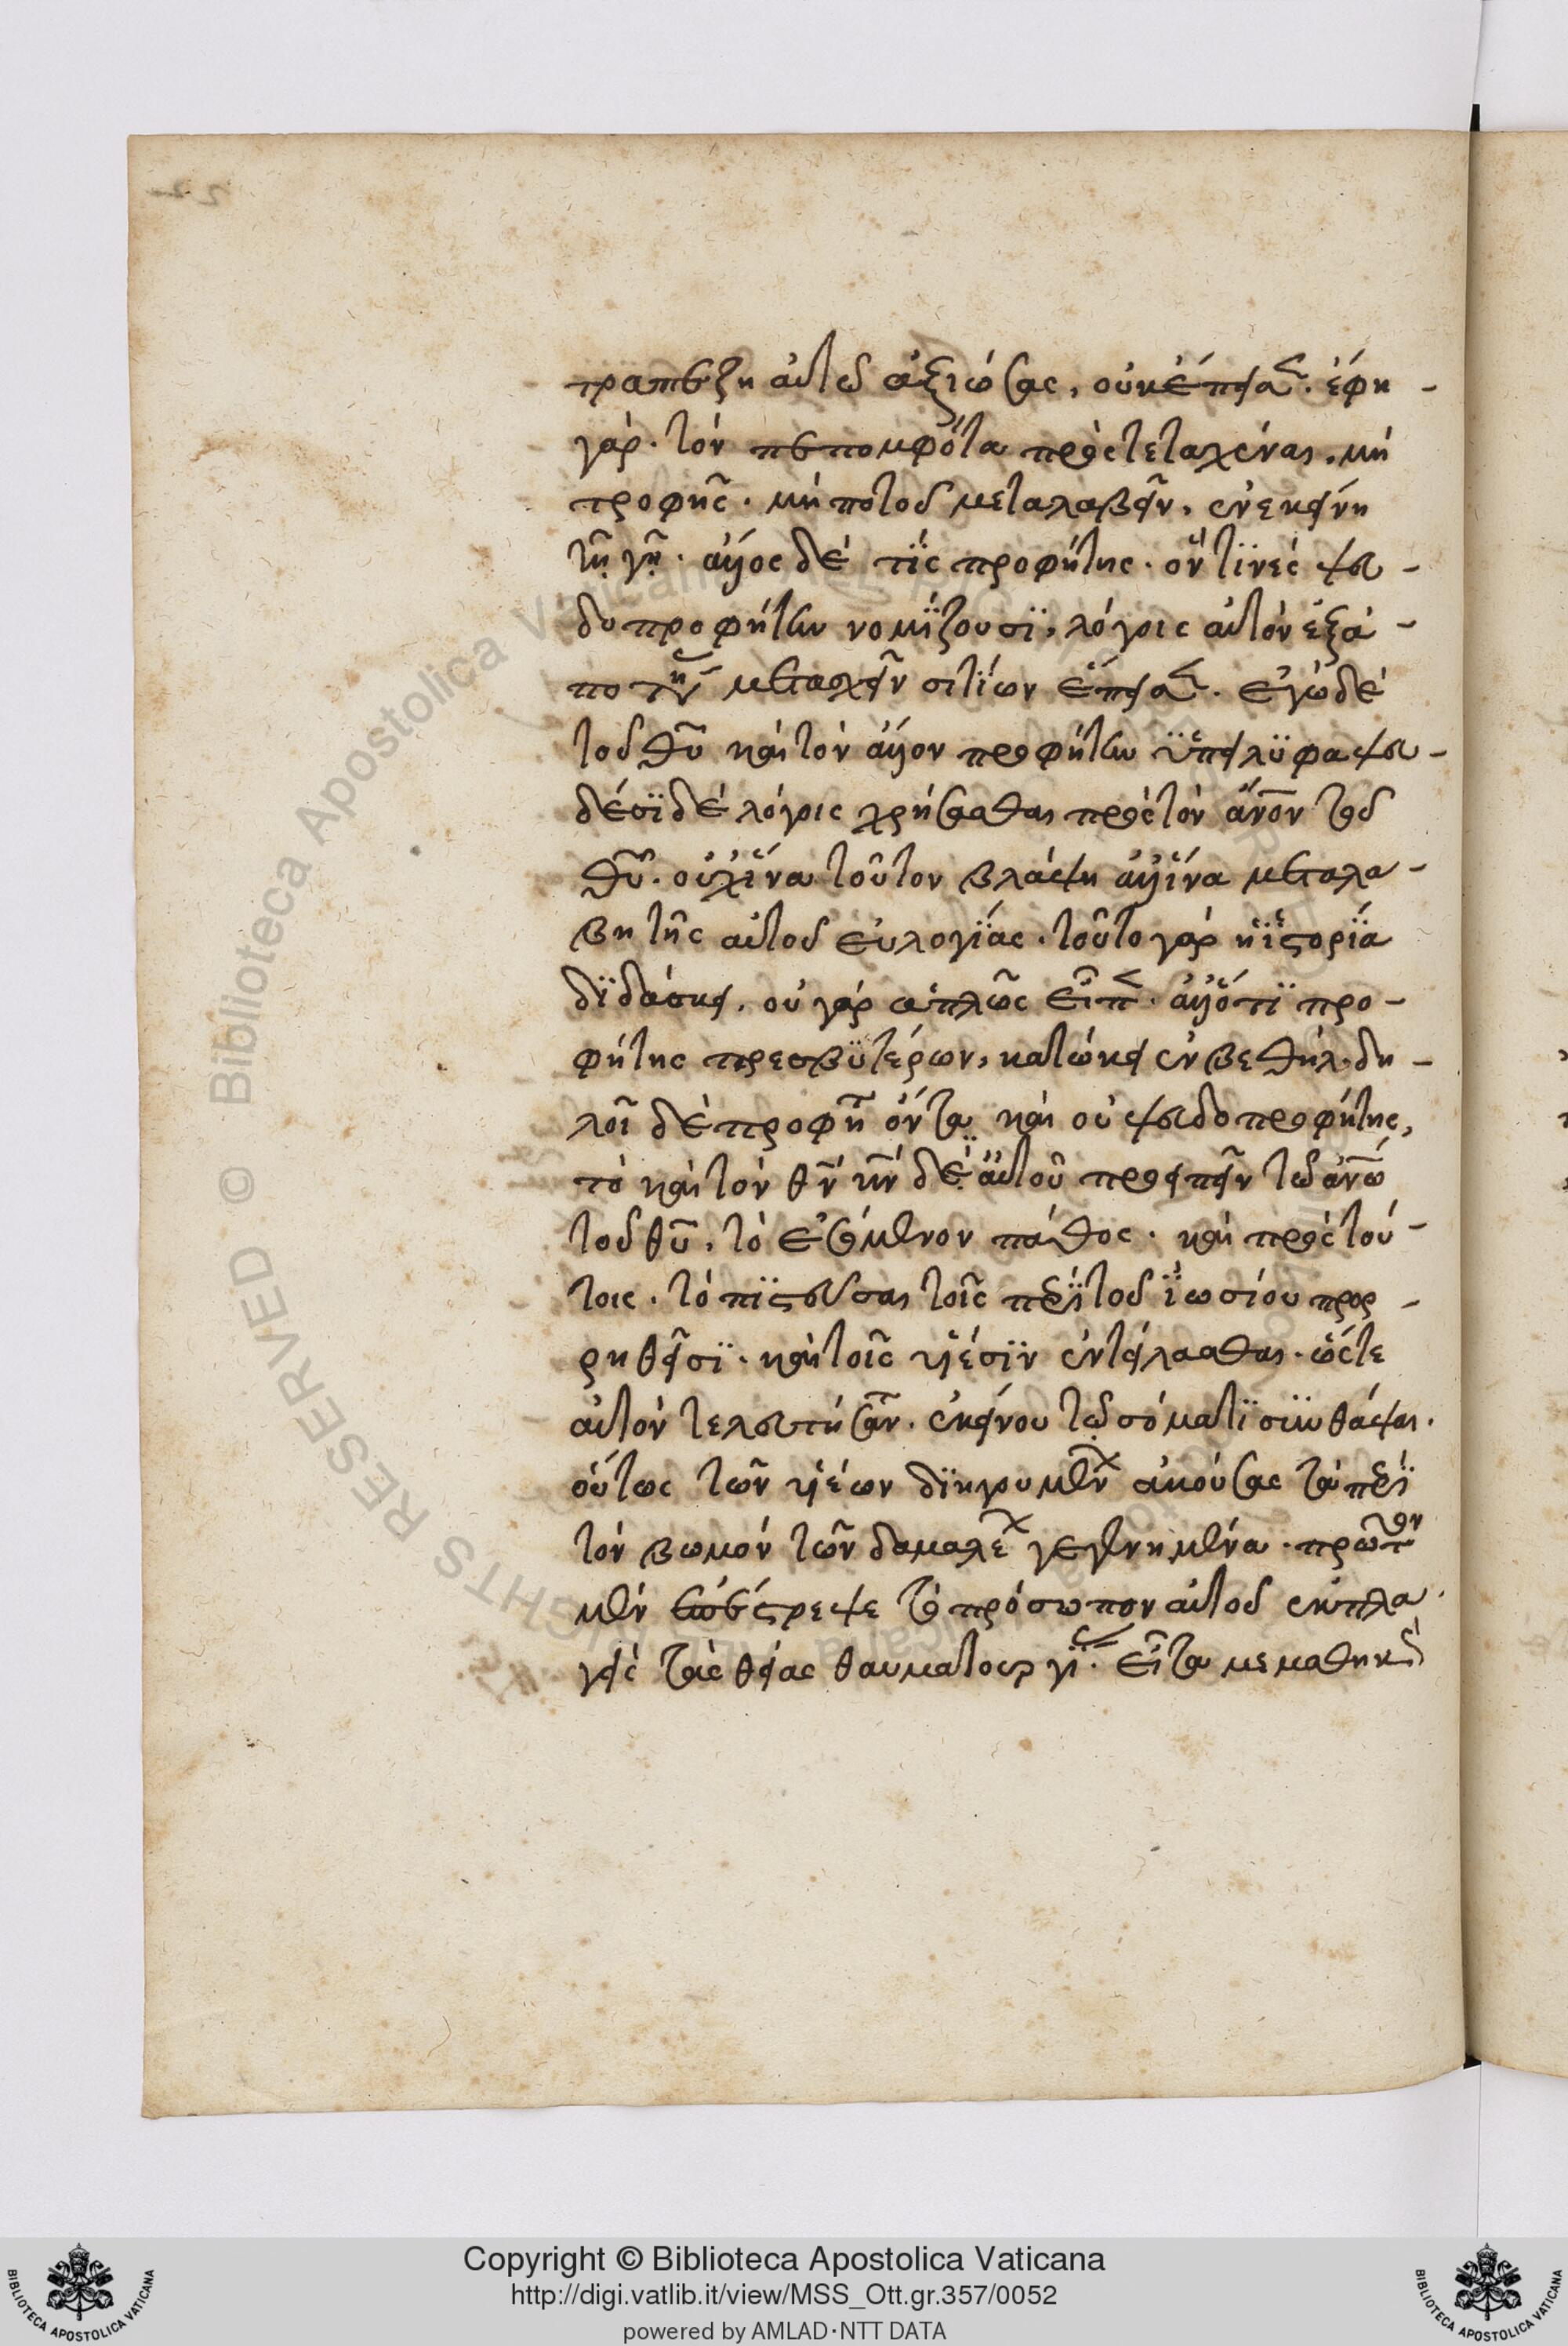 τραπέζη αὐτοῦ ἀξιώσας, οὐκέπεισεν. ἔφη -
γάρ. τὸν πεπομφότα προςτεταχέναι. μὴ
τροφῆς. μὴ ποτοῦ μεταλαβεῖν. ἐνεκείνη
τῆ γῆ. ἄλλος δέ τϊς προφήτης. ὃν τϊνές ψευ -
δοπροφήτην νομΐζουσϊ, λόγοις αὐτὸν ἐξα -
πατήσας μετασχεῖν σιτΐων ἔπεισεν. ἐγὼ δὲ
τοῦ θῦ καὶ τὸν ἄλλον προφήτην ὑπείλϋφα ψευ -
δέσϊ δὲ λόγοις χρήσασθαι πρὸς τὸν ἄνον τοῦ
θῦ. οὐχ ἵνα τοῦτον βλάψη ἀλλ ἵνα μεταλα -
βη τῆς αὐτοῦ εὐλογΐας. τοῦτο γὰρ ἡ ϊστορΐα
δϊδάσκει. οὐ γὰρ ἁπλῶς εἶπεν. ἀλλ ὅτϊ προ -
φήτης πρεσβϋτέρων, κατώκει ἐν βεθήλ. δη -
λοῖ δὲ προφη ὄντα καὶ οὐ ψευδοπροφήτης,
τὸ καὶ τὸν θν κν δϊ αὐτοῦ προειπεῖν τῶ ἀνω
τοῦ θῦ. τὸ ἐσόμενον πάθος. καὶ πρὸς τού -
τοις. τὸ πϊστεῦσαι τοῖς περΐ τοῦ ϊωσίου προς -
ρηθεῖσϊ. καὶ τοῖς υἱέσϊν ἐντείλασθαι. ὥςτε
αὐτὸν τελευτήσαν. ἐκείνου τῶ σόματϊ συνθάψαι.
οὕτως τῶν υἱέων δϊηγουμένων ἀκούσας τὰ περΐ
τὸν βωμὸν τῶν δαμαλεων γεγενημένα. πρῶτον
μὲν ἐπέστρεψε τὸ πρόσωπον αὐτοῦ ἐκπλα
γεὶς τὰς θείας θαυματουργίας. εἶτα μεμαθηκὼς